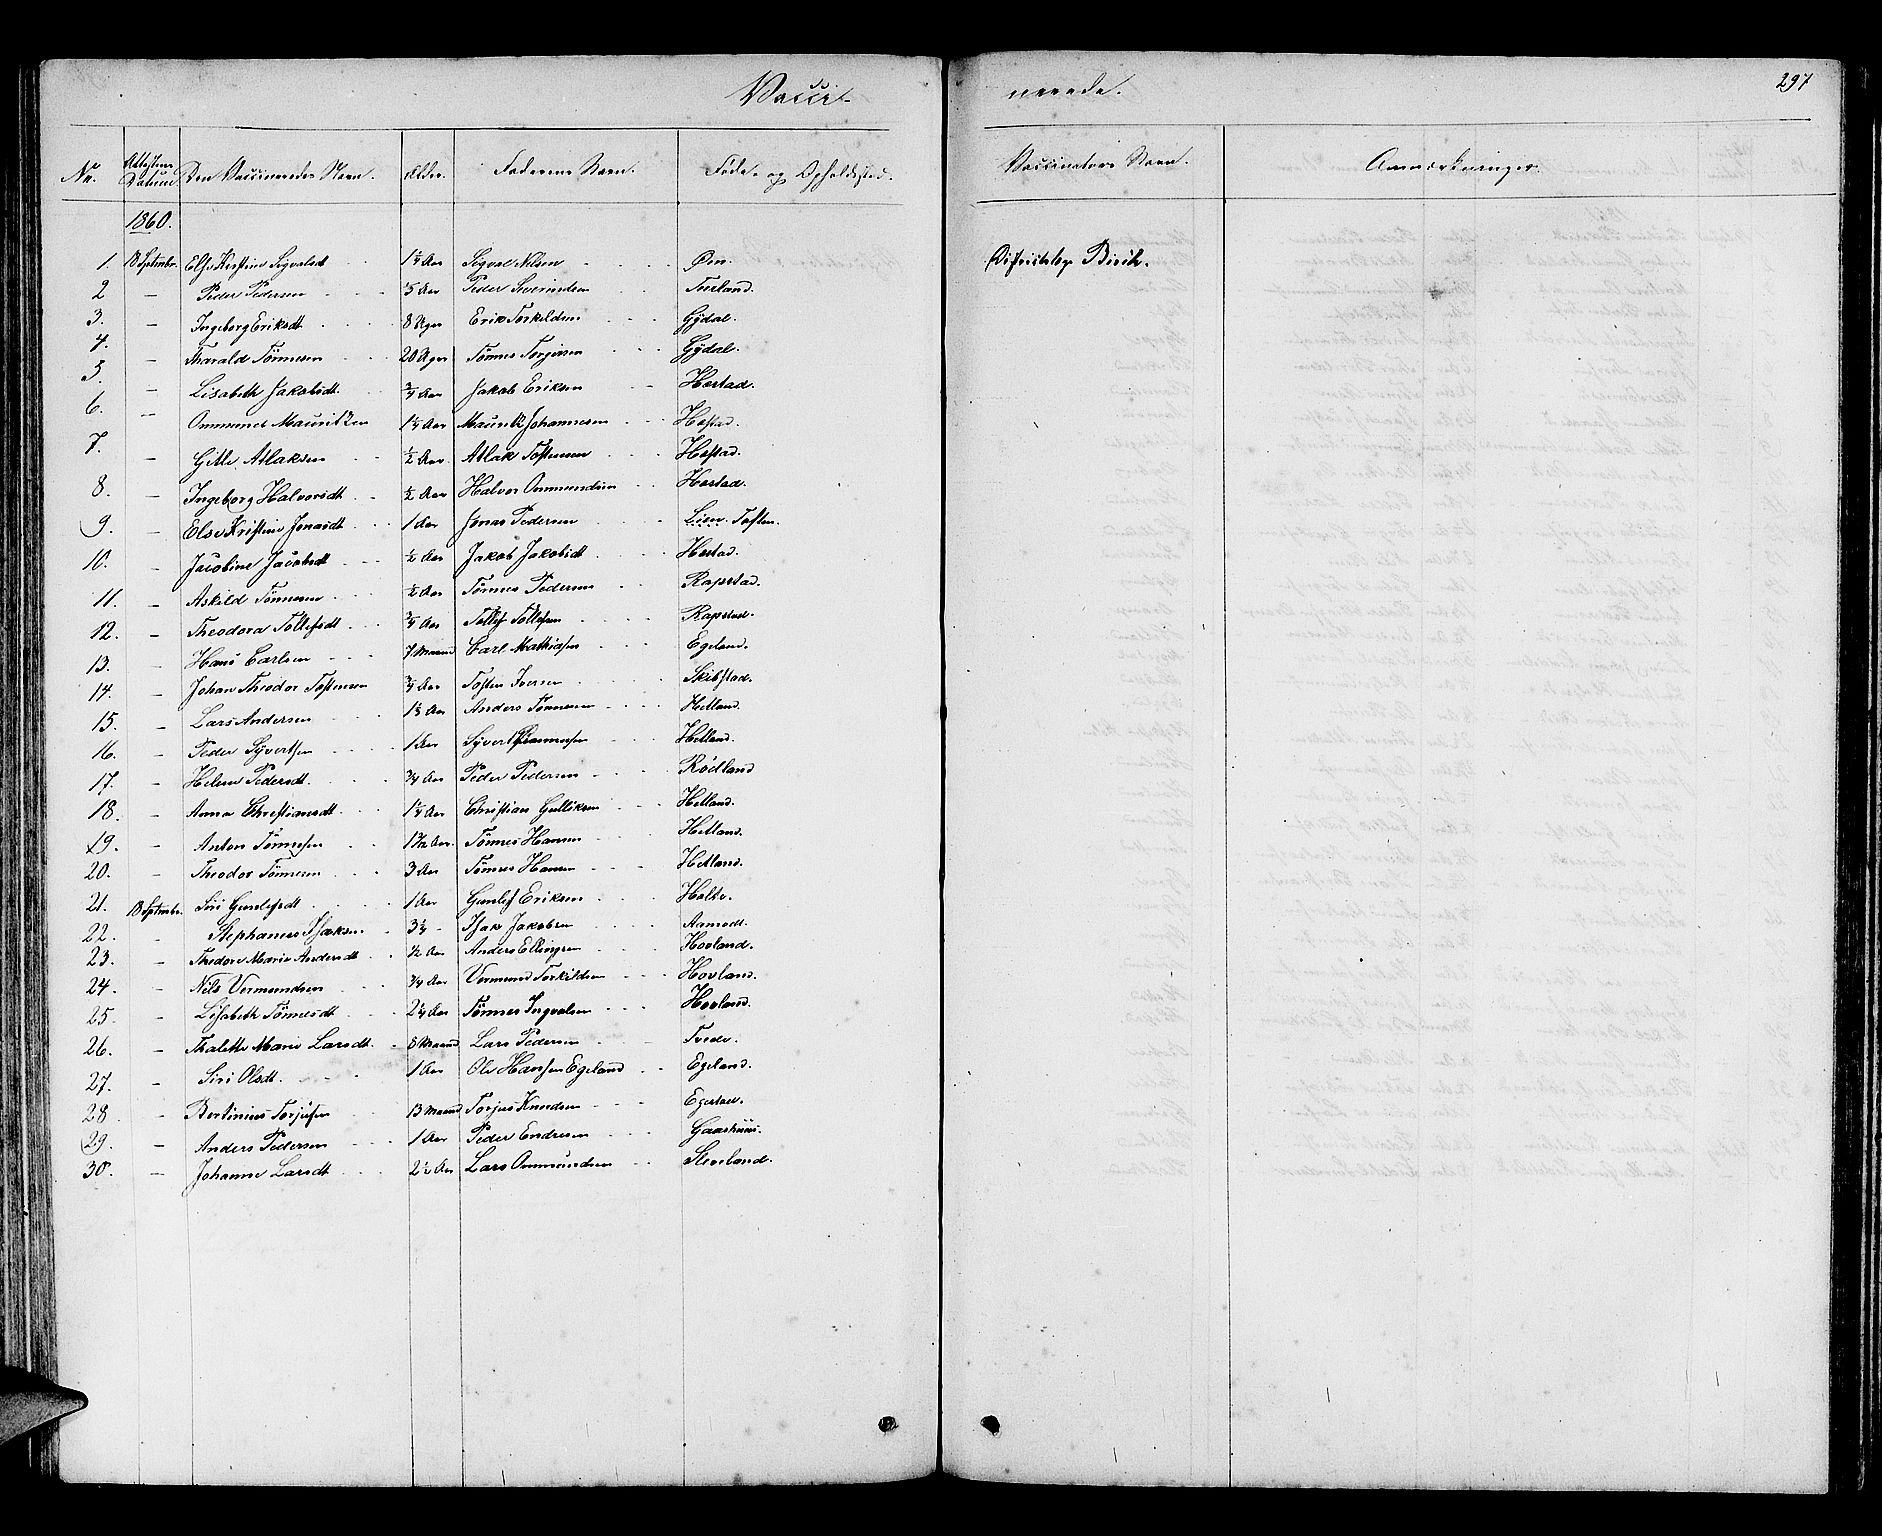 Vacci- neerede. 297
No. Attestens Datum. Den Vaccineredes Navn. Alder. Faderens Navn. Føde- og Opholdssted. Vaccinatørs Navn. Anmærkninger.
1860.
1. 18 Septmbr. Else Kirstine Sigvalsdt 1 1/4 Aar Sigval Nilsen Øen. Districtslæge Birch.
2 — Peder Pedersen Aar Peder Severindsen
3. — Ingeborg Eriksdt 8 Uger Erik Torkildsen Gÿdal.
4. — Tharald Tönnesen 20 Uger Tönnes Torgersen Gÿdal.
5. — Lisabeth Jakobsdt. 3/4 Aar Jakob Eriksen Hæstad.
6. — Ommund Mauritzen 1 1/4 Aar Mauritz Johannesen Hæstad.
7. — Gitle Atlaksen 1/2 Aar Atlak Tostensen Hæstad.
8. — Ingeborg Halvorsdt 1/2 Aar Halvor Ommundsen Hæstad.
9. — Else Kristine Jonasdt 1 Aar Jonas Pedersen Lien. Tosten.
10. — Jacobine Jacobsdt 1/2 Aar Jakob Jakobsdt Hæstad.
11. — Askild Tönnesen 1/2 Aar Tönnes Pedersen Rapstad.
12. — Theodora Tollefsdt 3/4 Aar Tollef Tollefsen Rapstad.
13. — Hans Carlsen 7 Maand Carl Mathiasen Egeland.
14. — Johan Theodor Tostensen 3/4 Aar Tosten Iversen Skibstad.
15. — Lars Andersen Aar Anders Tönnesen Hetland.
16. — Peder Sÿvertsen 1 Aar Sÿvert Hetland.
17. — Helene Pedersdt. 3/4 Aar Peder Pedersen Rödland
18. — Anna Christiansdt 1 1/4 Aar Christian Gulliksen Hetland.
19. — Anton Tönnesen 1 1/2 Aar. Tönnes Hansen Hetland.
20. — Theodor Tönnesen 3 Aar Tönnes Hansen Hetland.
21. 18 Septmbr. Siri Gunlefsdt 1 Aar Gunlef Eriksen Holte.
22. — Stephanus Isaksen 3 1/2 - Isak Jakobsen Aamodt.
23. — Theodore Marie Andersdt 1/2 Aar Anders Ellingsen Hovland.
24. — Nils Vermundsen 3/4 Aar Vermund Torkildsen Hovland.
25. — Lisabeth Tönnesdt 2 1/4 Aar Tönnes Ingvalsen Hovland.
26. — Thalette Marie Larsdt. 8 Maand Lars Pedersen Tvede.
27. — Siri Olsdt. 1 Aar Ole Hansen Egeland Egeland.
28. — Bertinius Torjusen 13 Maand Torjus Knudsen Egestad.
29. — Anders Pedersen 1 Aar Peder Endresen Gaashuus.
30. — Johanne Larsdt 2 1/2 Aar Lars Ommundsen Sleveland.